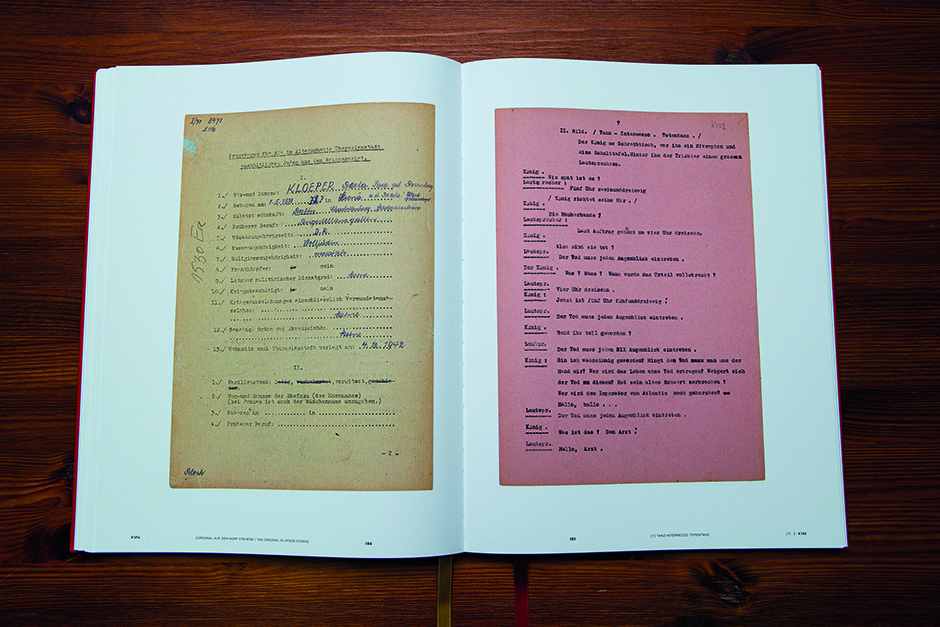 Fragebogen für die im Altersghetto Theresienstadt
verbliebenen Juden aus dem Reichsgebiet.
I.
1./ Vor-und Zuname: KLOEPER
2./ Geboren am: 1.5.1878 in
3./ Zuletzt wohnhaft: Berlin
4./ Früherer Beruf:
5./ Staatsangehörigkeit: D.R.
6./ Rassenzugehörigkeit: Volljüdin
7./ Religionszugehörigkeit: mosaisch
8./ Frontkämpfer: ja nein
9./ Letzter militärischer Dienstgrad: keine
10./ Kriegsbeschädigt: ja nein
11./ Kriegsauszeichnungen einschliesslich Verwundetenab-
zeichen: keine
12./ Sonstige Orden und Ehrenzeichen: keine
13./ Wohnsitz nach Theresienstadt verlegt am: 4.10.1942
II.
1./ Familienstand: ledig, verheiratet, verwitwet, geschie-
den.
2./ Vor-und Zuname der Ehefrau (des Ehemannes)
(bei Frauen ist auch der Mädchenname anzugeben.)
3./ Geboren am in
4./ Früherer Beruf:
- 2 -
[ORIGINAL AUF DEM KOPF STEHEND / THE ORIGINAL IS UPSIDE DOWN]
184
7
II. Bild. / Tanz - Intermezzo . Totentanz . /
Der König am Schreibtisch, vor ihm ein Mikrophon und
eine Schalttafel.Hinter ihm der Trichter eines grossen
Lautsprechers.
König .
Wie spät ist es ?
Lautsprecher :
Fünf Uhr zweiunddreissig
/ König richtet seine Uhr . /
König .
Die Hauberbande ?
Lautsprecher :
Laut Auftrag gehängt um vier Uhr dreissig.
König .
Also sind sie tot ?
Lautspr.
Der Tod muss jeden Augenblick eintreten .
Der König .
Was ? Muss ? Wann wurde das Urteil vollstreckt ?
Lautspr.
Vier Uhr dreissig .
König :
Jetzt ist fünf Uhr fünfunddreissig !
Lautspr.
Der Tod muss jeden Augenblick eintreten .
König .
Seid ihr toll geworden ?
Lautspr.
Der Tod muss jeden Augenblick eintreten .
König :
Bin ich wahnsinnig geworden? Ringt den Tod man uns der
Hand mir? Wer wird das Leben ohne Tod ertragen? Weigert sich
der Tod zu dienen? Hat sein altes Schwert zerbrochen ?
Wer wird dem Imperator von Atlantis noch gehorchen?
Hallo, hallo . . .
Lautspr.
Der Tod muss jeden Augenblick eintreten .
König .
Was ist das ? Den Arzt !
Lautspr.
Hallo, Arzt .
185
[7] TANZ-INTERMEZZO. TOTENTANZ